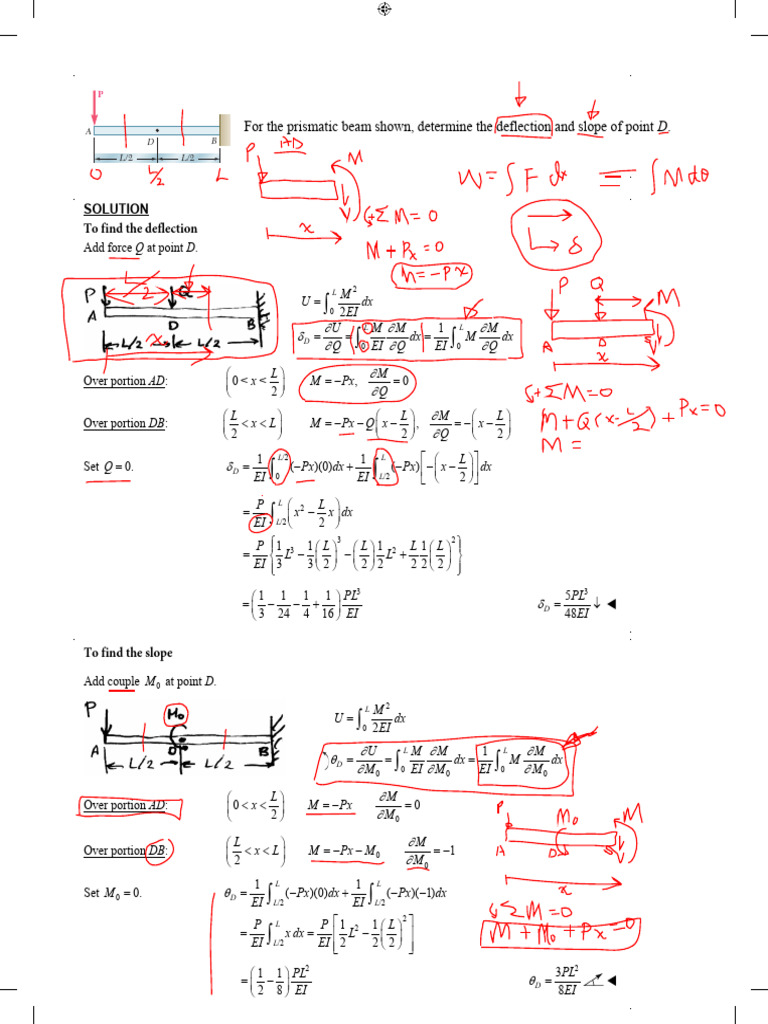 P
A D B
L/2 L/2
0 L/2 L
For the prismatic beam shown, determine the deflection and slope of point D.
AD
P M
x
W = ∫ F dx = ∫ M dθ
δ
↺+ΣM = 0
M + Px = 0
M = -Px
SOLUTION
To find the deflection
Add force Q at point D.
L/2 x
P Q
A D B
L/2 L/2
U = ∫₀ᴸ M²/2EI dx
δ_D = ∂U/∂Q = ∫₀ᴸ M/EI ∂M/∂Q dx = 1/EI ∫₀ᴸ M ∂M/∂Q dx
P Q M
A D
x
Over portion AD: (0 < x < L/2) M = −Px, ∂M/∂Q = 0
↺+ΣM = 0
Over portion DB: (L/2 < x < L) M = −Px − Q(x − L/2), ∂M/∂Q = −(x − L/2)
M + Q(x - L/2) + Px = 0
M =
Set Q = 0. δ_D = 1/EI ∫₀^{L/2} (−Px)(0)dx + 1/EI ∫_{L/2}^L (−Px)[−(x − L/2)]dx
= P/EI ∫_{L/2}^L (x² − L/2 x)dx
= P/EI {1/3 L³ − 1/3 (L/2)³ − (L/2) 1/2 L² + L/2 1/2 (L/2)²}
= (1/3 − 1/24 − 1/4 + 1/16) PL³/EI δ_D = 5PL³/48EI ↓ ◄
To find the slope
Add couple M₀ at point D.
P M₀
A D B
L/2 L/2
U = ∫₀ᴸ M²/2EI dx
θ_D = ∂U/∂M₀ = ∫₀ᴸ M/EI ∂M/∂M₀ dx = 1/EI ∫₀ᴸ M ∂M/∂M₀ dx
Over portion AD: (0 < x < L/2) M = −Px ∂M/∂M₀ = 0
P M₀ M
A D
x
Over portion DB: (L/2 < x < L) M = −Px − M₀ ∂M/∂M₀ = −1
Set M₀ = 0. θ_D = 1/EI ∫_{L/2}^L (−Px)(0)dx + 1/EI ∫_{L/2}^L (−Px)(−1)dx
↺+ΣM = 0
M + M₀ + Px = 0
= P/EI ∫_{L/2}^L x dx = P/EI [1/2 L² − 1/2 (L/2)²]
= (1/2 − 1/8) PL²/EI θ_D = 3PL²/8EI ◄